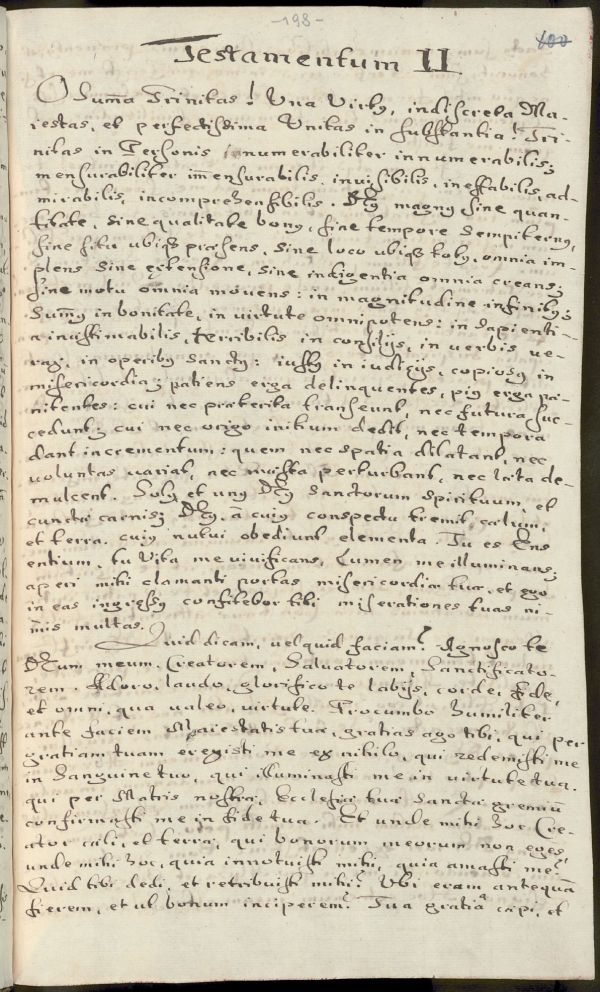 -198-
100
Testamentum II
O Sum̃a Trinitas! Una Virtus, indiscreta Ma-
iestas, et perfectissima Unitas in substantia! Tri-
nitas in Personis innumerabiliter innumerabilis;
mensurabiliter im̃ensurabilis, invisibilis, ineffabilis, ad-
mirabilis, incomprehensibilis. DEus magnus sine quan-
titate, sine qualitate bonus, sine tempore sempiternus,
sine situ ubique præsens, sine loco ubique totus, omnia im-
plens sine extensione, sine indigentia omnia creans;
sine motu omnia movens: in magnitudine infinitus;
Summus in bonitate, in virtute omnipotens: in sapienti-
a inæstimabilis, terribilis in consilijs, in verbis ve-
rax, in operibus sanctus: iustus in iudicijs, copiosus in
misericordia; patiens erga delinquentes, pius erga pæ-
nitentes: cui nec præterita transeunt, nec futura suc-
cedunt; cui nec origo initium dedit, nec tempora
dant incrementum: quem nec spatia dilatant, nec
voluntas variat, nec mæsta perturbant, nec læta de-
mulcent. Solus et unus DEus Sanctorum spirituum, et
cunctæ carnis; DEus, à cuius conspectu tremit cælum,
et terra, cuius nutui obediunt elementa. Tu es Ens
entium, tu Vita me vivificans, Lumen me illuminans;
aperi mihi clamanti portas misericordiæ tuæ, et ego
in eas ingressus confitebor tibi miserationes tuas ni-
mis multas.
Quid dicam, vel quid faciam? Agnosco te
DEum meum, Creatorem, Salvatorem, Sanctificato-
rem. Adoro, laudo, glorifico te labijs, corde, fide,
et omni, qua valeo, virtute. Procumbo humiliter
ante faciem Maiestatis tuæ, gratias ago tibi, qui per
gratiam tuam erexisti me ex nihilo, qui redemisti me
in Sanguine tuo, qui illuminasti me in virtute tua,
qui per Matris nostræ, Ecclesiæ tuæ Sanctæ gremiũ
confirmasti me in fide tua. Et unde mihi hoc Cre-
ator cæli, et terræ, qui bonorum meorum non eges?
unde mihi hoc, quia innotuisti mihi, quia amasti me?
Quid tibi dedi, et retribuisti mihi? Ubi eram antequã
fierem, et ut bonum inciperem? Tua gratia cæpi, et